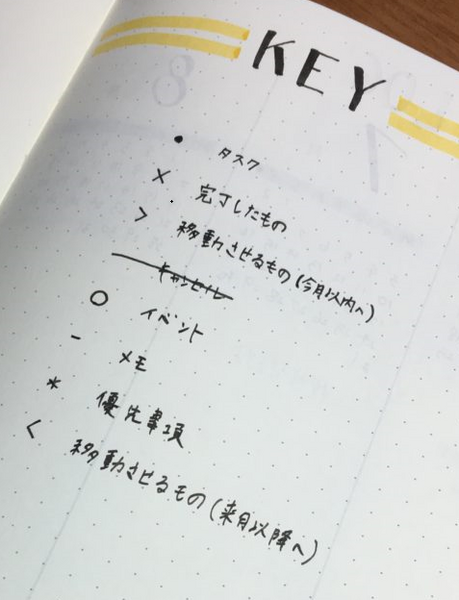 KEY
• タスク
× 完了したもの
> 移動させるもの(今月以内へ)
キャンセル
○ イベント
- メモ
* 優先事項
< 移動させるもの(来月以降へ)